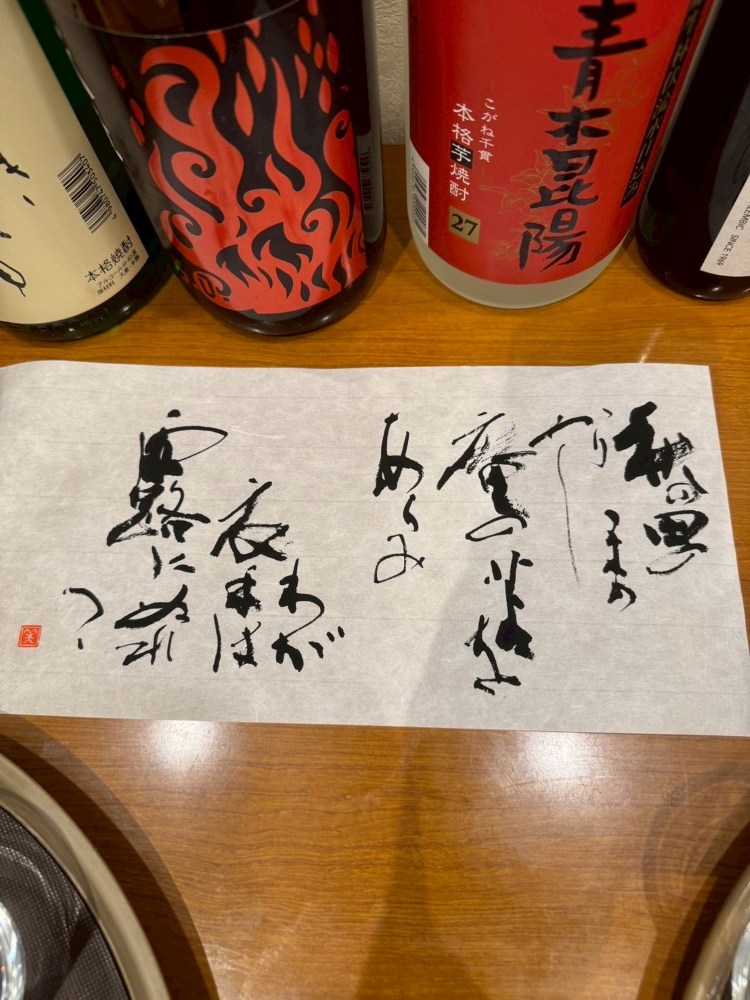 本格焼酎
青木昆陽
こがね千貫
本格芋焼酎
27
SINCE 1969
秋の田の
かりほの
庵の苫を
あらみ
わが
衣手は
露にぬれ
つゝ